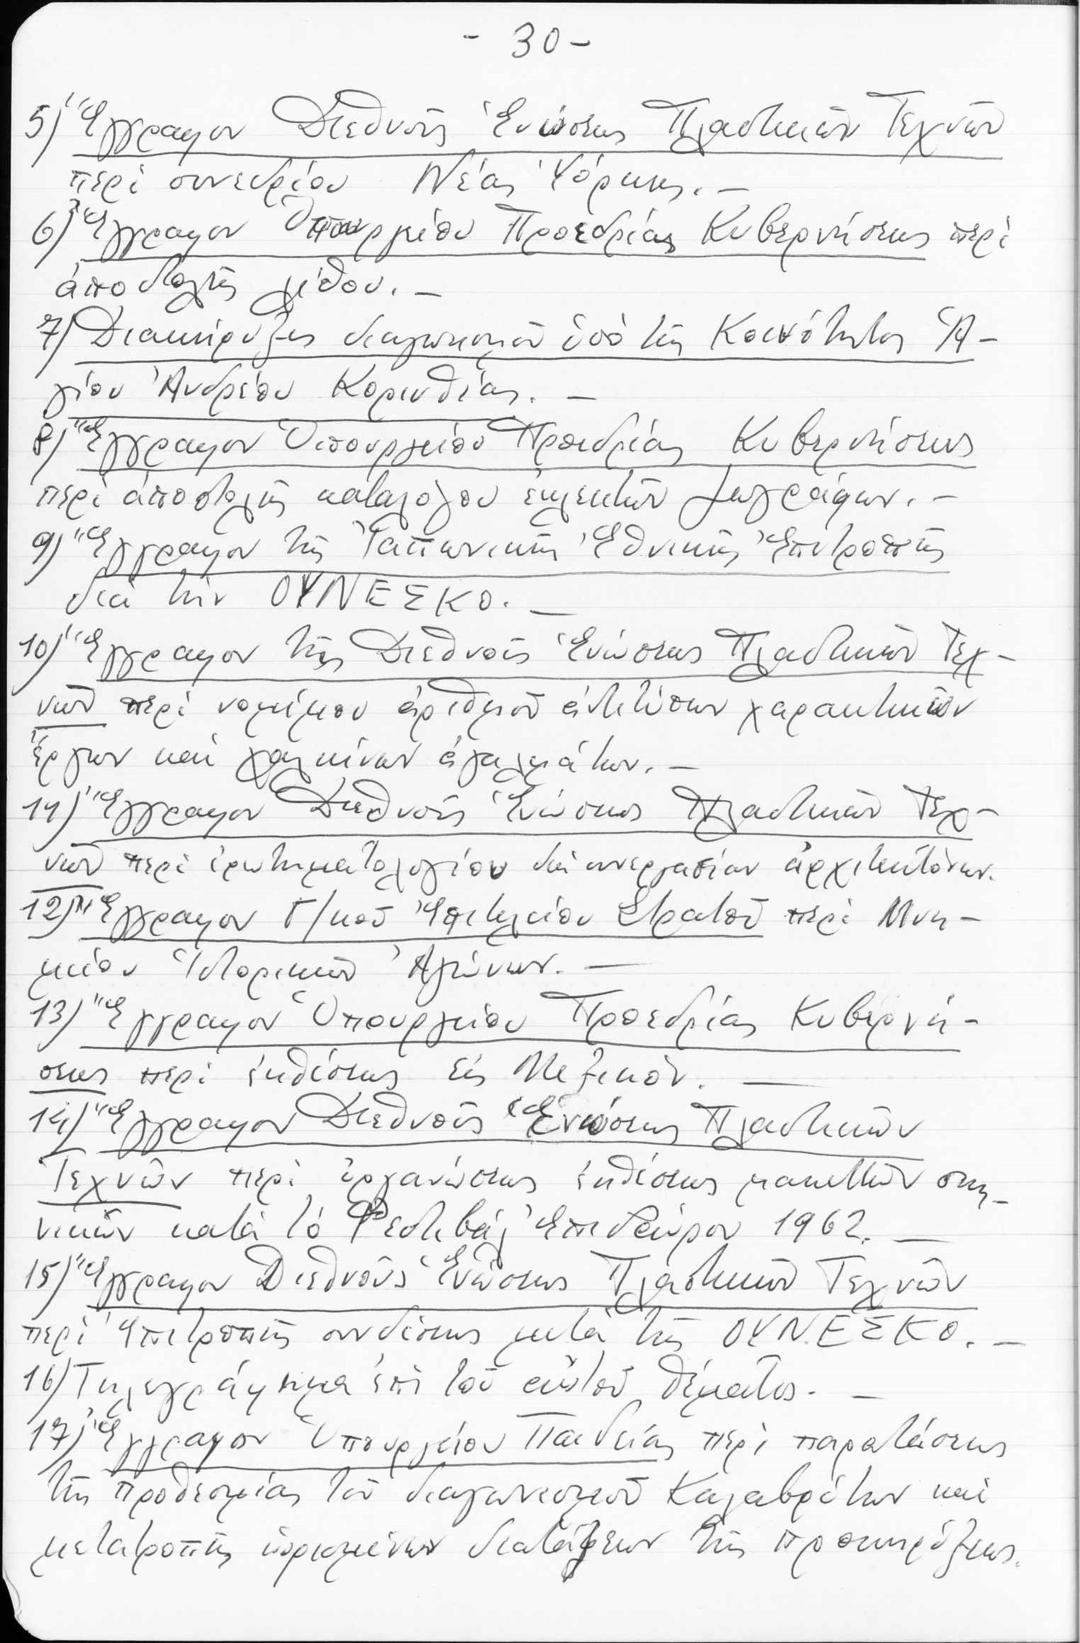 - 30 -
5) Ἔγγραφον Διεθνοῦς Ἑνώσεως Πλαστικῶν Τεχνῶν
περὶ συνεδρίου Νέας Ὑόρκης. -
6) Ἔγγραφον Ὑπουργείου Προεδρίας Κυβερνήσεως περὶ
ἀποστολῆς λίθου. -
7) Διακήρυξις διαγωνισμοῦ ὑπὸ τῆς Κοινότητος Ἁ-
γίου Ἀνδρέου Κορινθίας. -
8) Ἔγγραφον Ὑπουργείου Προεδρίας Κυβερνήσεως
περὶ ἀποστολῆς καταλόγου ἐκλεκτῶν ζωγράφων. -
9) Ἔγγραφον τῆς Ἰαπωνικῆς Ἐθνικῆς Ἐπιτροπῆς
διὰ τὴν ΟΥΝΕΣΚΟ. -
10) Ἔγγραφον τῆς Διεθνοῦς Ἑνώσεως Πλαστικῶν Τεχ-
νῶν περὶ νομίμου ἀριθμοῦ ἀντιτύπων χαρακτικῶν
ἔργων καὶ χαλκίνων ἀγαλμάτων. -
11) Ἔγγραφον Διεθνοῦς Ἑνώσεως Πλαστικῶν Τεχ-
νῶν περὶ ἐρωτηματολογίου διὰ συνεργασίαν ἀρχιτεκτόνων.
12) Ἔγγραφον Γ/κοῦ Ἐπιτελείου Στρατοῦ περὶ Μνη-
μείου Ἱστορικῶν Ἀγώνων. -
13) Ἔγγραφον Ὑπουργείου Προεδρίας Κυβερνή-
σεως περὶ ἐκθέσεως εἰς Μεξικόν. -
14) Ἔγγραφον Διεθνοῦς Ἑνώσεως Πλαστικῶν
Τεχνῶν περὶ ὀργανώσεως ἐκθέσεως μακεττῶν σκη-
νικῶν κατὰ τὸ Φεστιβὰλ Ἐπιδαύρου 1962. -
15) Ἔγγραφον Διεθνοῦς Ἑνώσεως Πλαστικῶν Τεχνῶν
περὶ Ἐπιτροπῆς συνδέσεως μετὰ τῆς ΟΥΝΕΣΚΟ. -
16) Τηλεγράφημα ἐπὶ τοῦ αὐτοῦ θέματος. -
17) Ἔγγραφον Ὑπουργείου Παιδείας περὶ παρατάσεως
τῆς προθεσμίας τοῦ διαγωνισμοῦ Καλαβρύτων καὶ
μετατροπῆς ὡρισμένων διατάξεων τῆς προκηρύξεως.